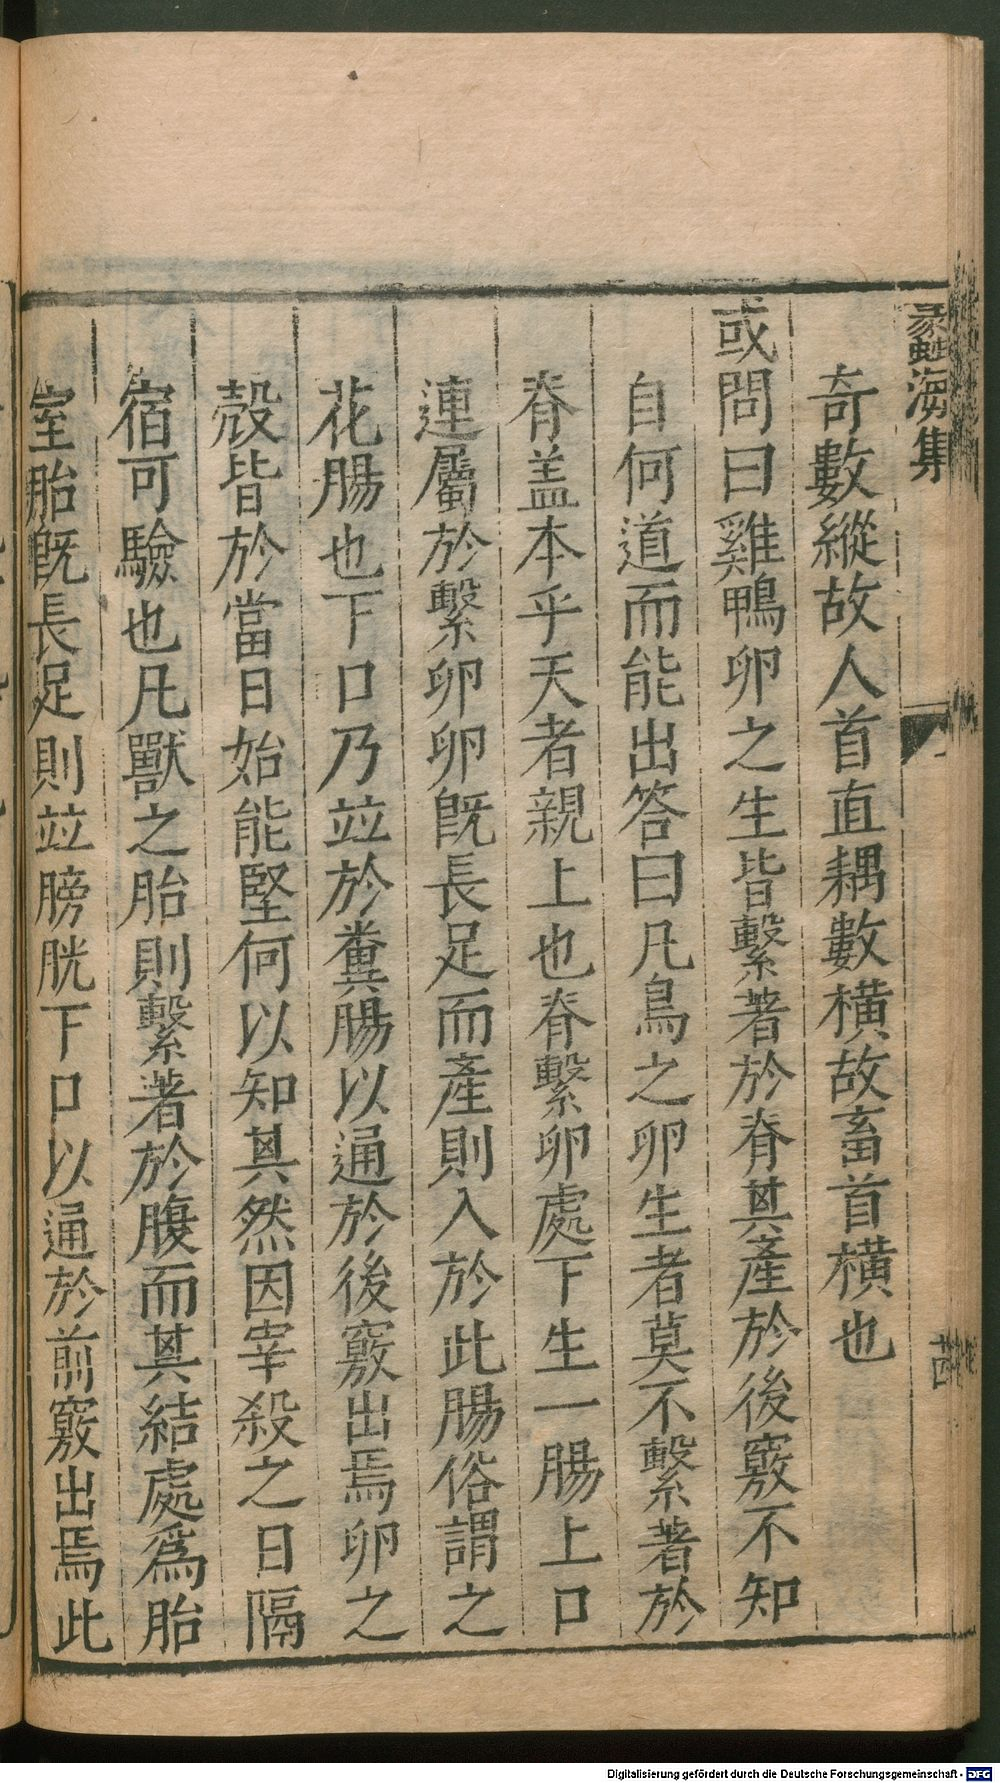 蠡海集
十四
奇數縱故人首直耦數橫故畜首橫也
或問曰雞鴨卵之生皆繫著於脊其產於後竅不知
自何道而能出答曰凡鳥之卵生者莫不繫著於
脊盖本乎天者親上也脊繫卵處下生一腸上口
連屬於繫卵卵旣長足而產則入於此腸俗謂之
花腸也下口乃竝於糞腸以通於後竅出焉卵之
殻皆於當日始能堅何以知其然因宰殺之日隔
宿可驗也凡獸之胎則繫著於腹而其結處爲胎
室胎旣長足則竝膀胱下口以通於前竅出焉此
Digitalisierung gefördert durch die Deutsche Forschungsgemeinschaft - DFG